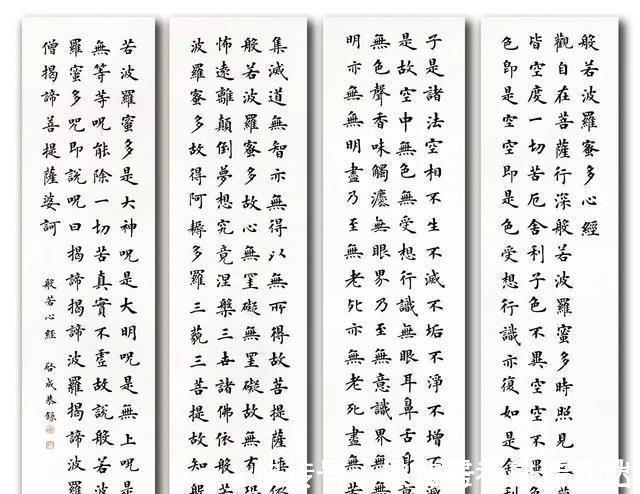 般若波羅蜜多心經
觀自在菩薩行深般若波羅蜜多時照見
皆空度一切苦厄舍利子色不異空空不
色即是空空即是色受想行識亦復如是舍
子是諸法空相不生不滅不垢不淨不增不
是故空中無色無受想行識無眼耳鼻舌身
無色聲香味觸灋無眼界乃至無意識界無
明亦無無明盡乃至無老死亦無老死盡無
集滅道無智亦無得以無所得故菩提薩埵
般若波羅蜜多故心無罣礙無罣礙故無有
怖遠離顛倒夢想究竟涅槃三世諸佛依般
波羅蜜多故得阿耨多羅三藐三菩提故知般
若波羅蜜多是大神呪是大明呪是無上呪是
無等等呪能除一切苦真實不虛故說般若波
羅蜜多呪即說呪曰揭諦揭諦波羅揭諦波
僧揭諦菩提薩婆訶
般若心經 啓成恭錄